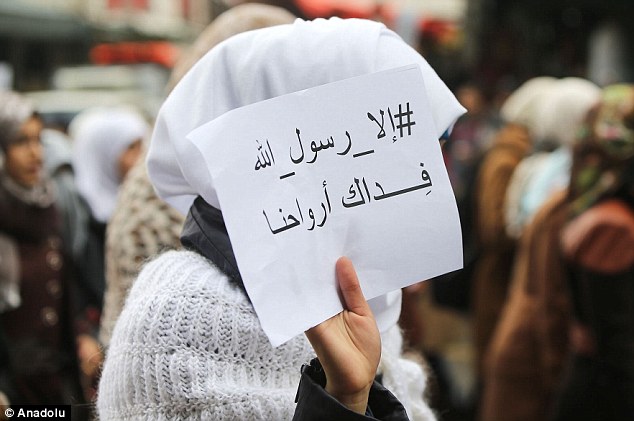 #إلا_رسول_الله
فِـداك أرواحنا
© Anadolu